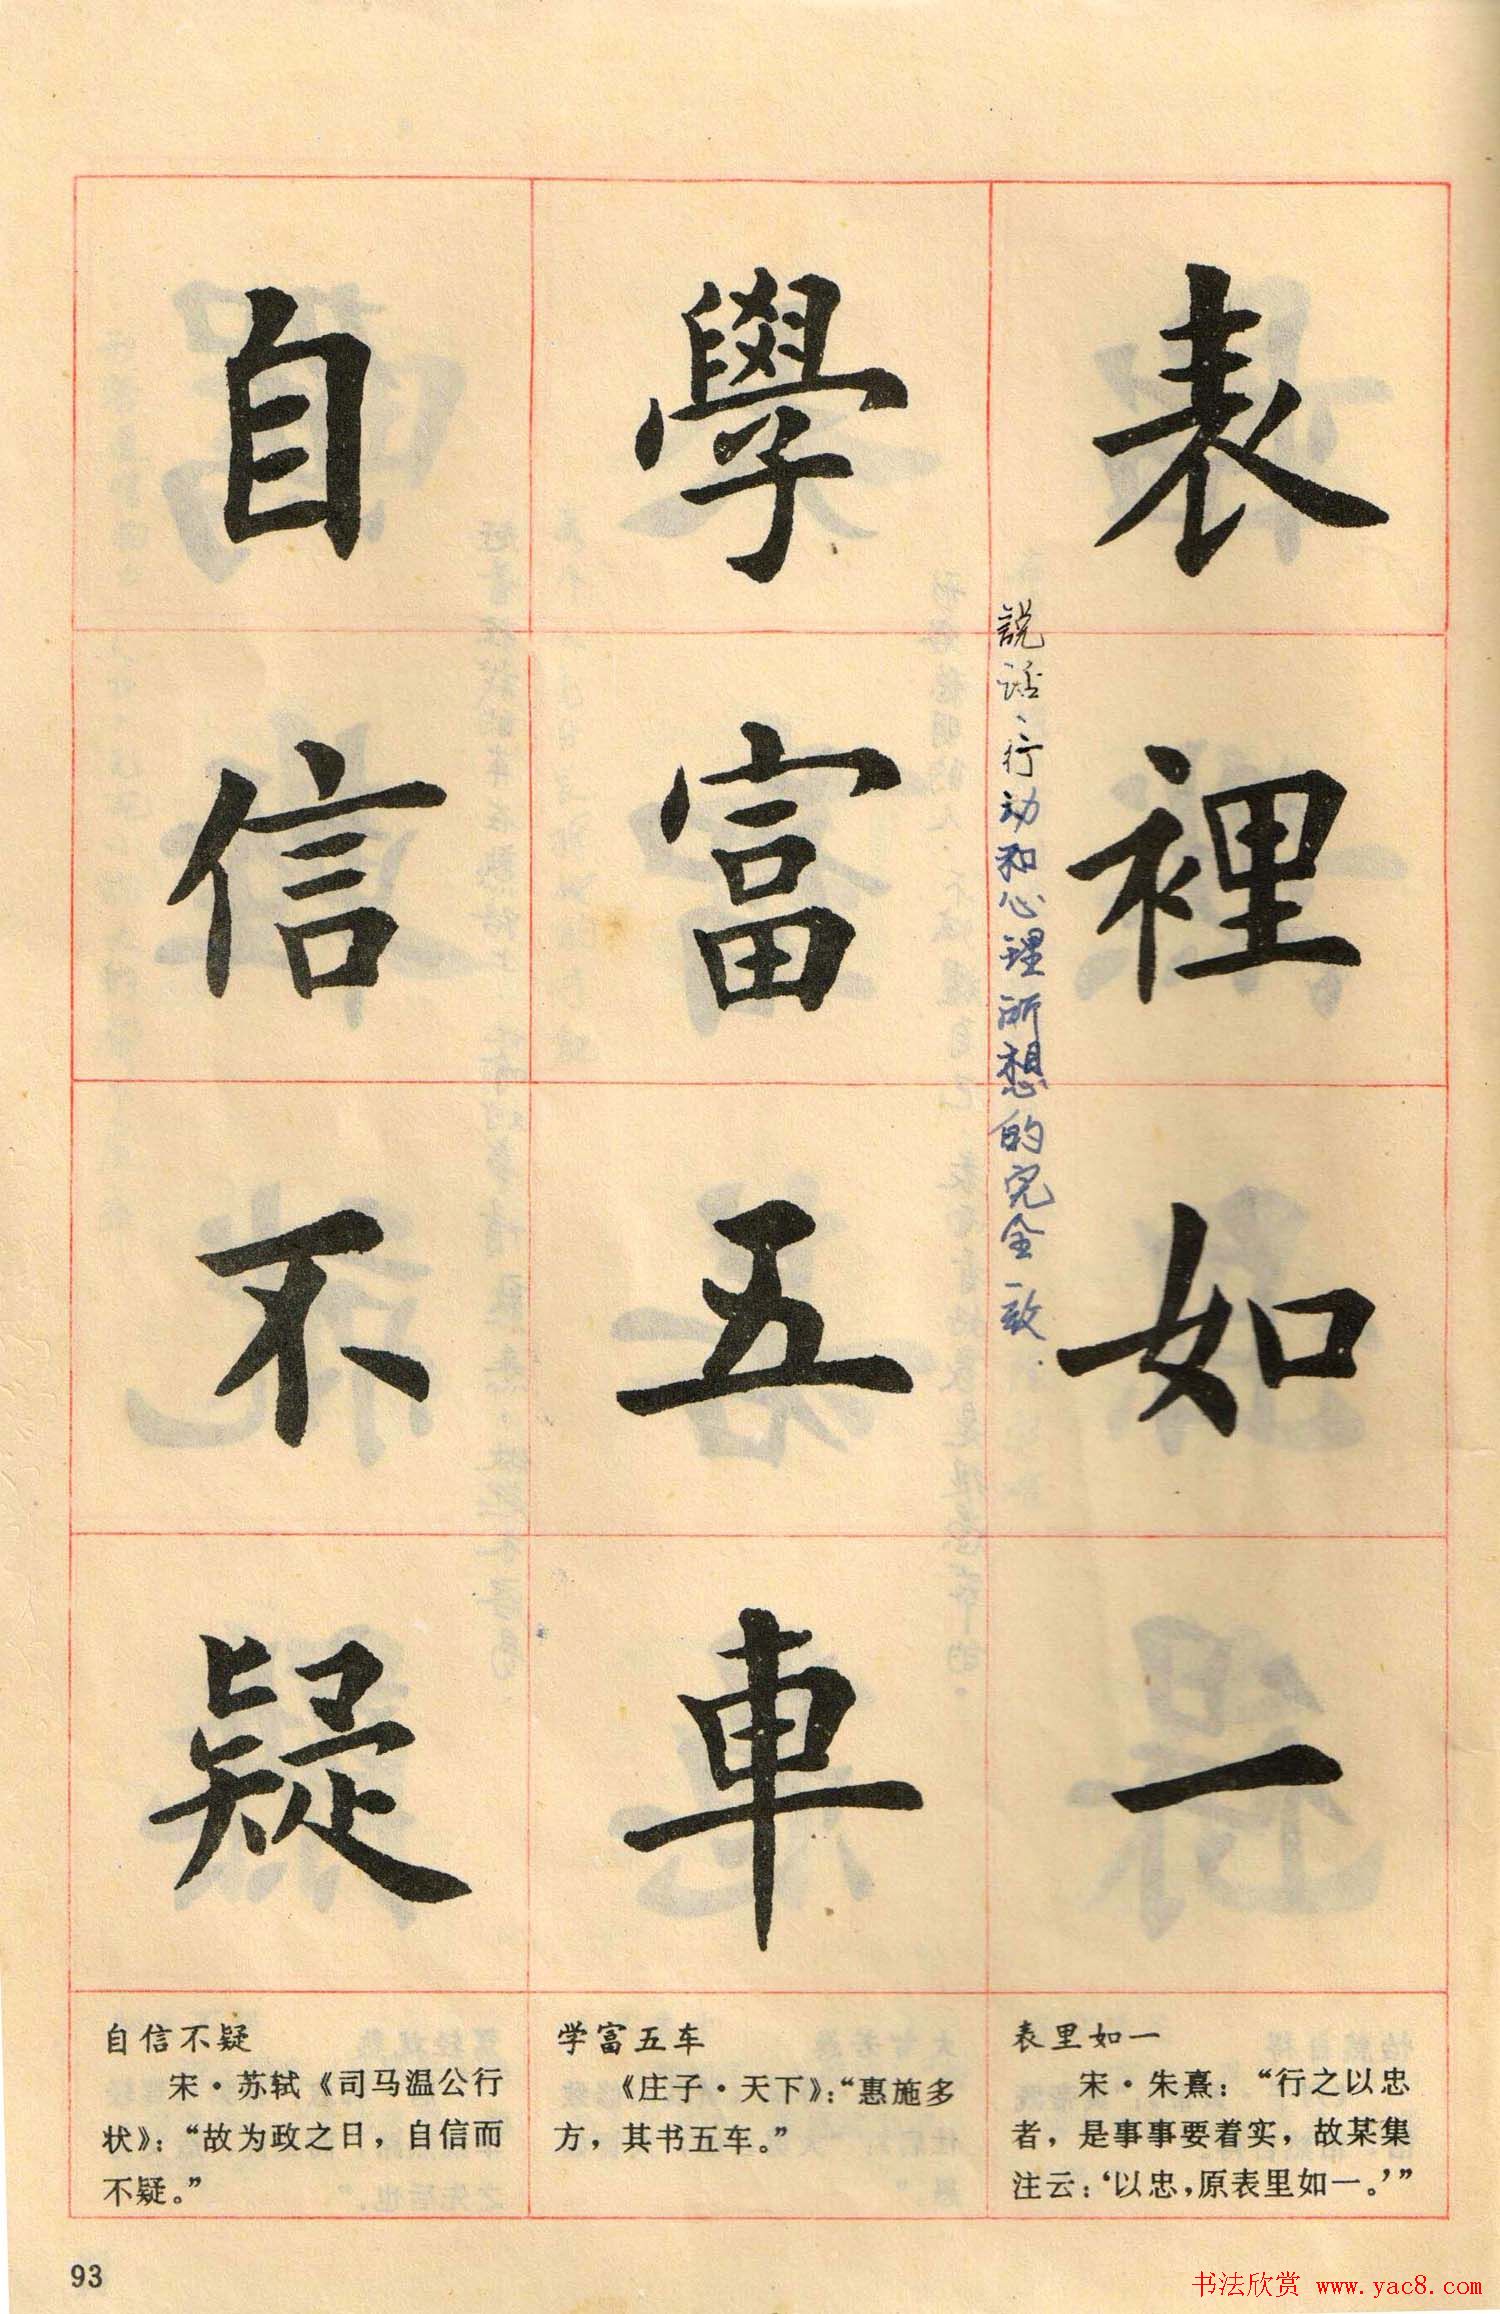 表裡如一
説话、行动和心理所想的完全一致.
學富五車
自信不疑
表里如一
宋·朱熹：“行之以忠
者，是事事要着实，故某集
注云：‘以忠，原表里如一。’”
学富五车
《庄子·天下》：“惠施多
方，其书五车。”
自信不疑
宋·苏轼《司马温公行
状》：“故为政之日，自信而
不疑。”
93
书法欣赏 www.yac8.com